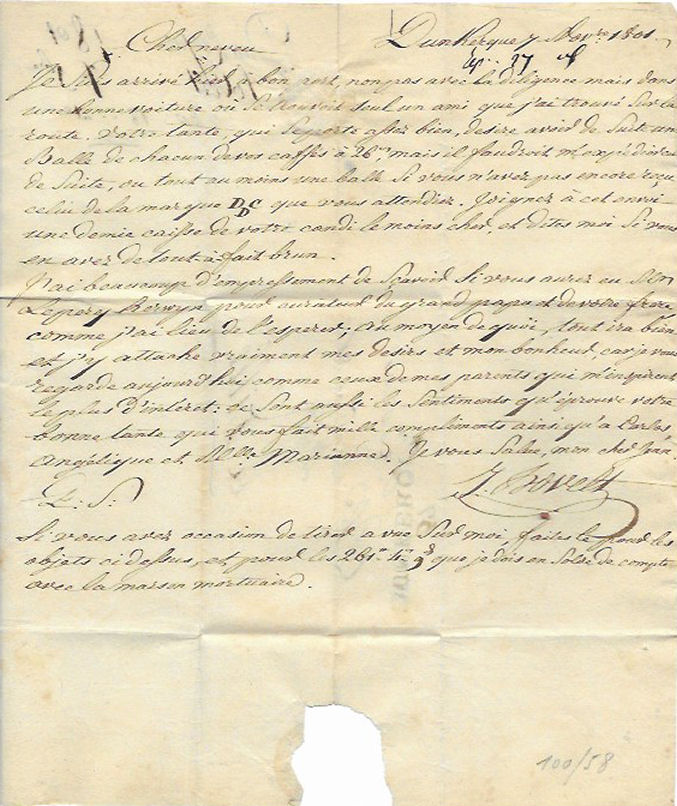 Cher neveu Dunkerque 7 Nov.re 1801.
rép. 27
Je suis arrivé hier à bon port, non pas avec la diligence mais dans
une bonne voiture où se trouvoit seul un ami que j'ai trouvé sur la
route. Votre tante, qui se porte assez bien, desire avoir de suite un
Balle de chacun de vos caffés à 26 mais il faudroit m'expédier
de suite, ou tout au moins une balle si vous n'avez pas encore reçu
celui de la marque DDC que vous attendiez. Joignez à cet envoi
une demie caisse de votre candi le moins cher, et dites moi si vous
en avez de tout-à-fait brun.
J'ai beaucoup d'empressement de sçavoir si vous aurez eu Mr
Lepery pour curateur du grand papa et de votre frere
comme j'ai lieu de l'esperer; au moyen de quoi, tout ira bien
et j'y attache vraiment mes desirs et mon bonheur, car je vous
regarde aujourd'hui, comme ceux de mes parents qui m'inspirent
le plus d'intéret: ce sont aussi les sentiments qu'éprouve votre
bonne tante qui vous fait mille compliments ainsi qu'à
Angélique et Mlle. Marianne. Je vous salue, mon cher
P.S.
Si vous avez occasion de tirer a vue sur moi, faites le pour les
objets ci dessus, et pour les que je dois en solde de compte
avec la maison mortuaire.
100/58